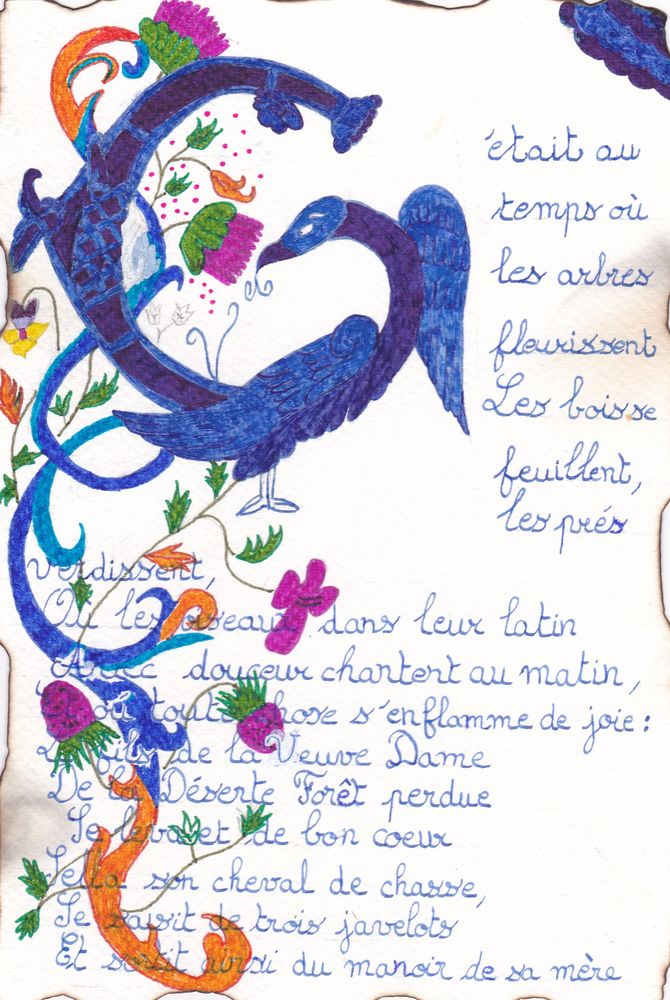 C
était au
temps où
les arbres
fleurissent
Les boisse
feuillent,
les prés
verdissent,
Où les oiseaux dans leur latin
Avec douceur chantent au matin,
où toute chose s'enflamme de joie :
Le fils de la Veuve Dame
De la Déserte Forêt perdue
Se leva et de bon coeur
Sella son cheval de chasse,
Se saisit de trois javelots
Et sortit ainsi du manoir de sa mère